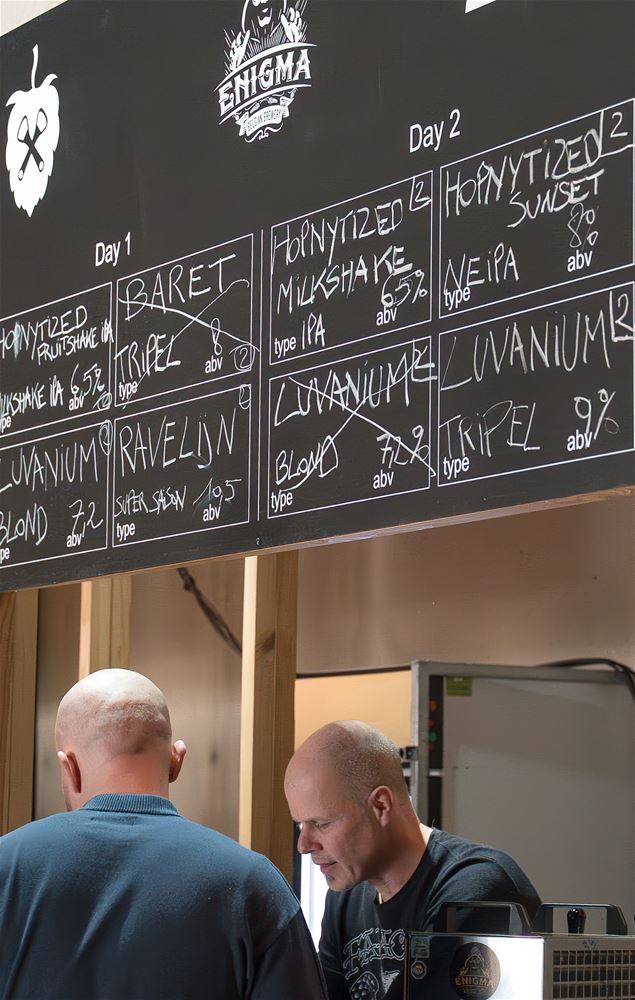 ENIGMA
BELGIAN BREWERY
Day 1
HOPNYTIZED
FRUITSHAKE IPA
MILKSHAKE IPA 6,5%
type
abv
2
BARET
TRIPEL 8
type
abv
2
LUVANIUM 2
BLOND 7,2
type
abv
RAVELIJN 2
SUPER SAISON 10,5
type
abv
Day 2
HOPNYTIZED 2
MILKSHAKE
6,5%
abv
type IPA
HOPNYTIZED 2
SUNSET
8%
NEIPA
type
abv
LUVANIUM 2
BLOND 7,2%
type
abv
LUVANIUM 2
TRIPEL 9%
type
abv
ENIGMA